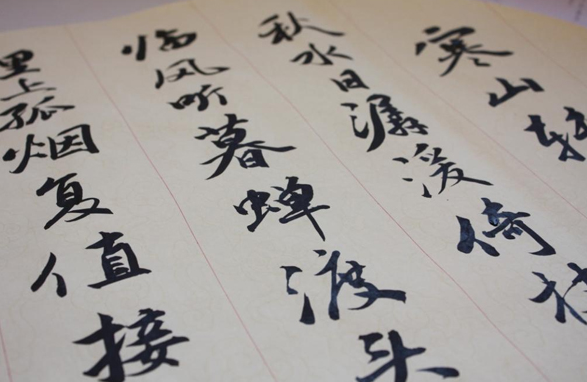 寒山转
秋水日潺湲倚
临风听暮蝉渡头
里上孤烟复值接